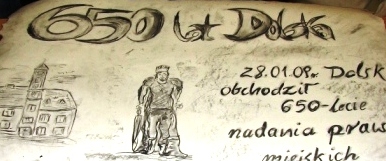 650 lat Dolska
28.01.09r. Dolsk
obchodził
650-lecie
nadania praw
miejskich